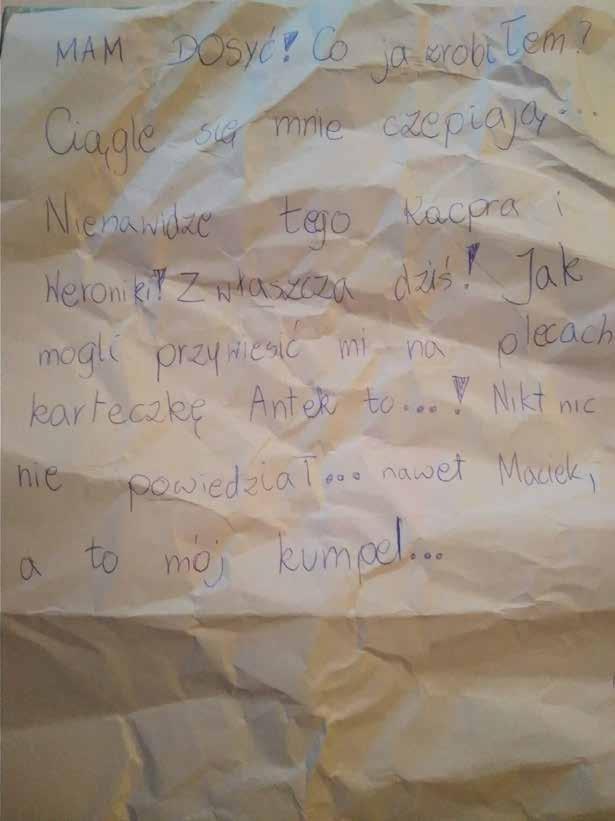 MAM DOSYĆ! Co ja zrobiłem?
Ciągle się mnie czepiają...
Nienawidzę tego Kacpra i
Weroniki! Zwłaszcza dziś! Jak
mogli przywiesić mi na plecach
karteczkę Antek to...! Nikt nic
nie powiedział... nawet Maciek,
a to mój kumpel...